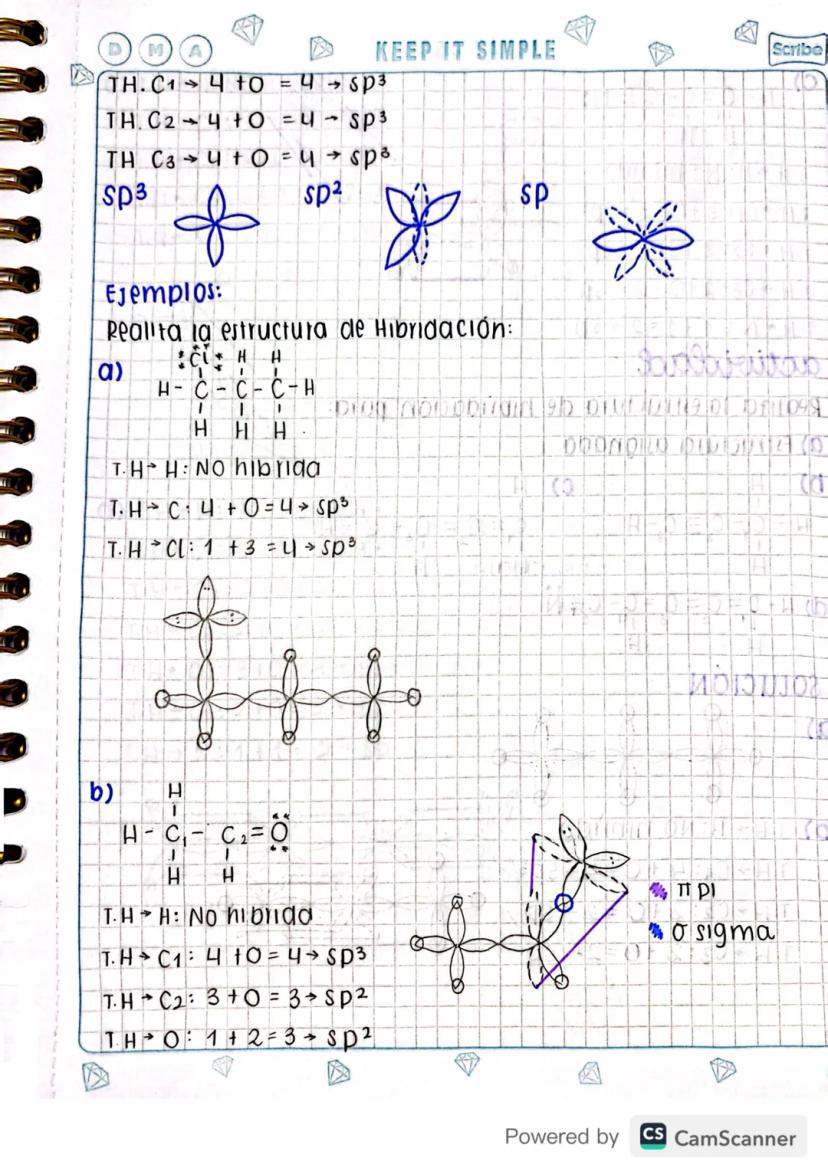 D M A KEEP IT SIMPLE Scribe
TH. C1 → 4 + 0 = 4 → sp³
TH. C2 → 4 + 0 = 4 → sp³
TH C3 → 4 + 0 = 4 → sp³
sp³ sp² sp
Ejemplos:
Realita la estructura de Hibridación:
a)
Cl H H
H - C - C - C - H
H H H
T.H → H: No hibrida
T.H → C: 4 + 0 = 4 → sp³
T.H → Cl: 1 + 3 = 4 → sp³
b)
H
H - C₁ - C₂ = O
H H
π pi
σ sigma
T.H → H: No hibrida
T.H → C1: 4 + 0 = 4 → sp³
T.H → C2: 3 + 0 = 3 → sp²
T.H → O: 1 + 2 = 3 → sp²
Powered by CS CamScanner